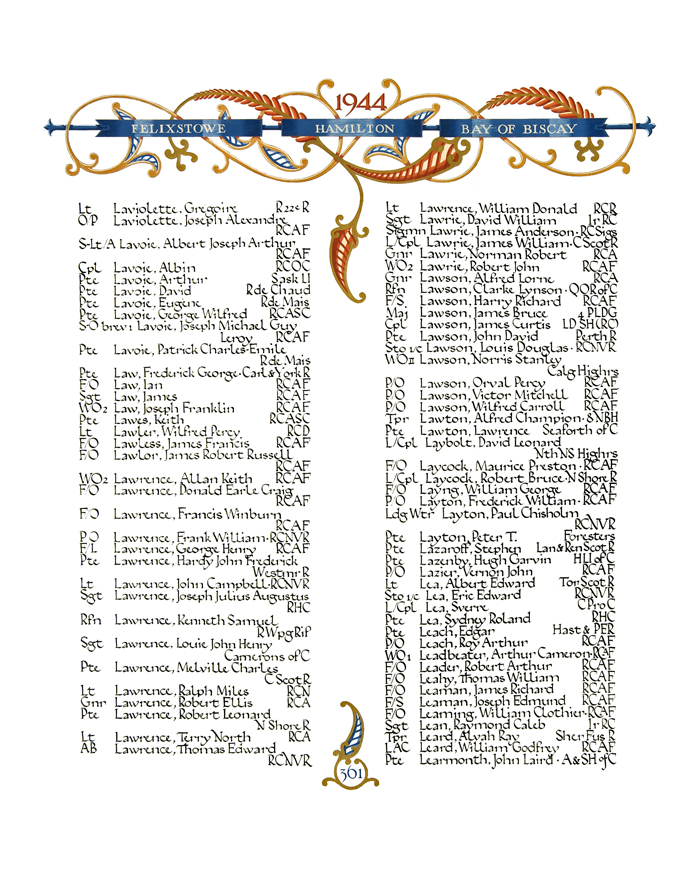 1944
FELIXSTOWE HAMILTON BAY OF BISCAY
Lt Laviolette, Gregoire R22eR
O/P Laviolette, Joseph Alexandre
RCAF
S-Lt/A Lavoie, Albert Joseph Arthur
RCAF
Cpl Lavoie, Albin RCOC
Pte Lavoie, Arthur Sask LI
Pte Lavoie, David R de Chaud
Pte Lavoie, Eugene R de Mais
Pte Lavoie, George Wilfred RCASC
S-O brev: Lavoie, Joseph Michael Guy
Leroy RCAF
Pte Lavoie, Patrick Charles-Emile
R de Mais
Pte Law, Frederick George·Carl&York R
F/O Law, Ian RCAF
Sgt Law, James RCAF
WO2 Law, Joseph Franklin RCAF
Pte Lawes, Keith RCASC
Lt Lawler, Wilfred Percy RCD
F/O Lawless, James Francis RCAF
F/O Lawlor, James Robert Russell
RCAF
WO2 Lawrence, Allan Keith RCAF
F/O Lawrence, Donald Earle Craig
RCAF
F/O Lawrence, Francis Winburn
RCAF
P/O Lawrence, Frank William·RCNVR
F/L Lawrence, George Henry RCAF
Pte Lawrence, Hardy John Frederick
Westmr R
Lt Lawrence, John Campbell·RCNVR
Sgt Lawrence, Joseph Julius Augustus
RHC
Rfn Lawrence, Kenneth Samuel
RWpgRif
Sgt Lawrence, Louie John Henry
Camerons of C
Pte Lawrence, Melville Charles
C Scot R
Lt Lawrence, Ralph Miles RCN
Gnr Lawrence, Robert Ellis RCA
Pte Lawrence, Robert Leonard
N Shore R
Lt Lawrence, Terry North RCA
AB Lawrence, Thomas Edward
RCNVR
Lt Lawrence, William Donald RCR
Sgt Lawrie, David William Ir RC
Sigmn Lawrie, James Anderson·RCSigs
L/Cpl Lawrie, James William·C Scot R
Gnr Lawrie, Norman Robert RCA
WO2 Lawrie, Robert John RCAF
Gnr Lawson, Alfred Lorne RCA
Rfn Lawson, Clarke Lynson·QOR of C
F/S Lawson, Harry Richard RCAF
Maj Lawson, James Bruce 4 PLDG
Cpl Lawson, James Curtis LD SH (RC)
Pte Lawson, John David Perth R
Sto 1/c Lawson, Louis Douglas·RCNVR
WOII Lawson, Norris Stanley
Calg Highrs
P/O Lawson, Orval Percy RCAF
P/O Lawson, Victor Mitchell RCAF
P/O Lawson, Wilfred Carroll RCAF
Tpr Lawton, Alfred Champion·8 NBH
Pte Lawton, Lawrence Seaforth of C
L/Cpl Laybolt, David Leonard
Nth NS Highrs
F/O Laycock, Maurice Preston·RCAF
L/Cpl Laycock, Robert Bruce·N Shore R
F/O Laying, William George RCAF
P/O Layton, Frederick William·RCAF
Ldg Wtr Layton, Paul Chisholm
RCNVR
Pte Layton, Peter T. Foresters
Pte Lazaroff, Stephen Lan&Ren Scot R
Pte Lazenby, Hugh Garvin HLI of C
P/O Lazier, Vernon John RCAF
Lt Lea, Albert Edward Tor Scot R
Sto 1/c Lea, Eric Edward RCNVR
L/Cpl Lea, Sverre C Pro C
Pte Lea, Sydney Roland RHC
Pte Leach, Edgar Hast & PER
P/O Leach, Roy Arthur RCAF
WO1 Leadbeater, Arthur Cameron·RCAF
F/O Leader, Robert Arthur RCAF
F/O Leahy, Thomas William RCAF
F/O Leaman, James Richard RCAF
F/S Leaman, Joseph Edmund RCAF
F/O Leaming, William Clothier·RCAF
Sgt Lean, Raymond Caleb Ir RC
Tpr Leard, Alvah Ray Sher Fus R
LAC Leard, William Godfrey RCAF
Pte Learmonth, John Laird·A&SH of C
361